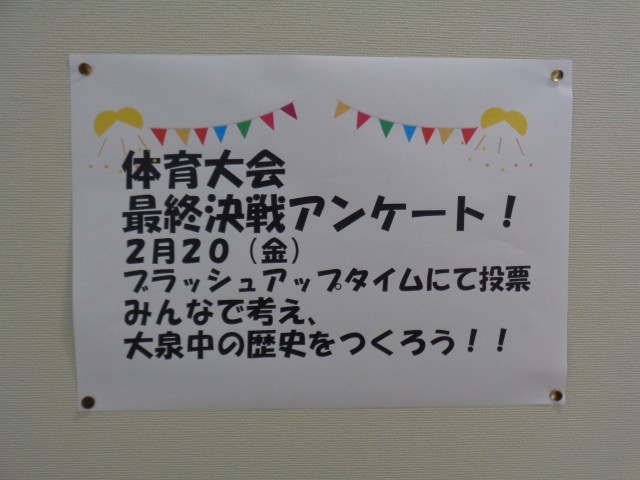 体育大会
最終決戦アンケート!
2月20(金)
ブラッシュアップタイムにて投票
みんなで考え、
大泉中の歴史をつくろう!!